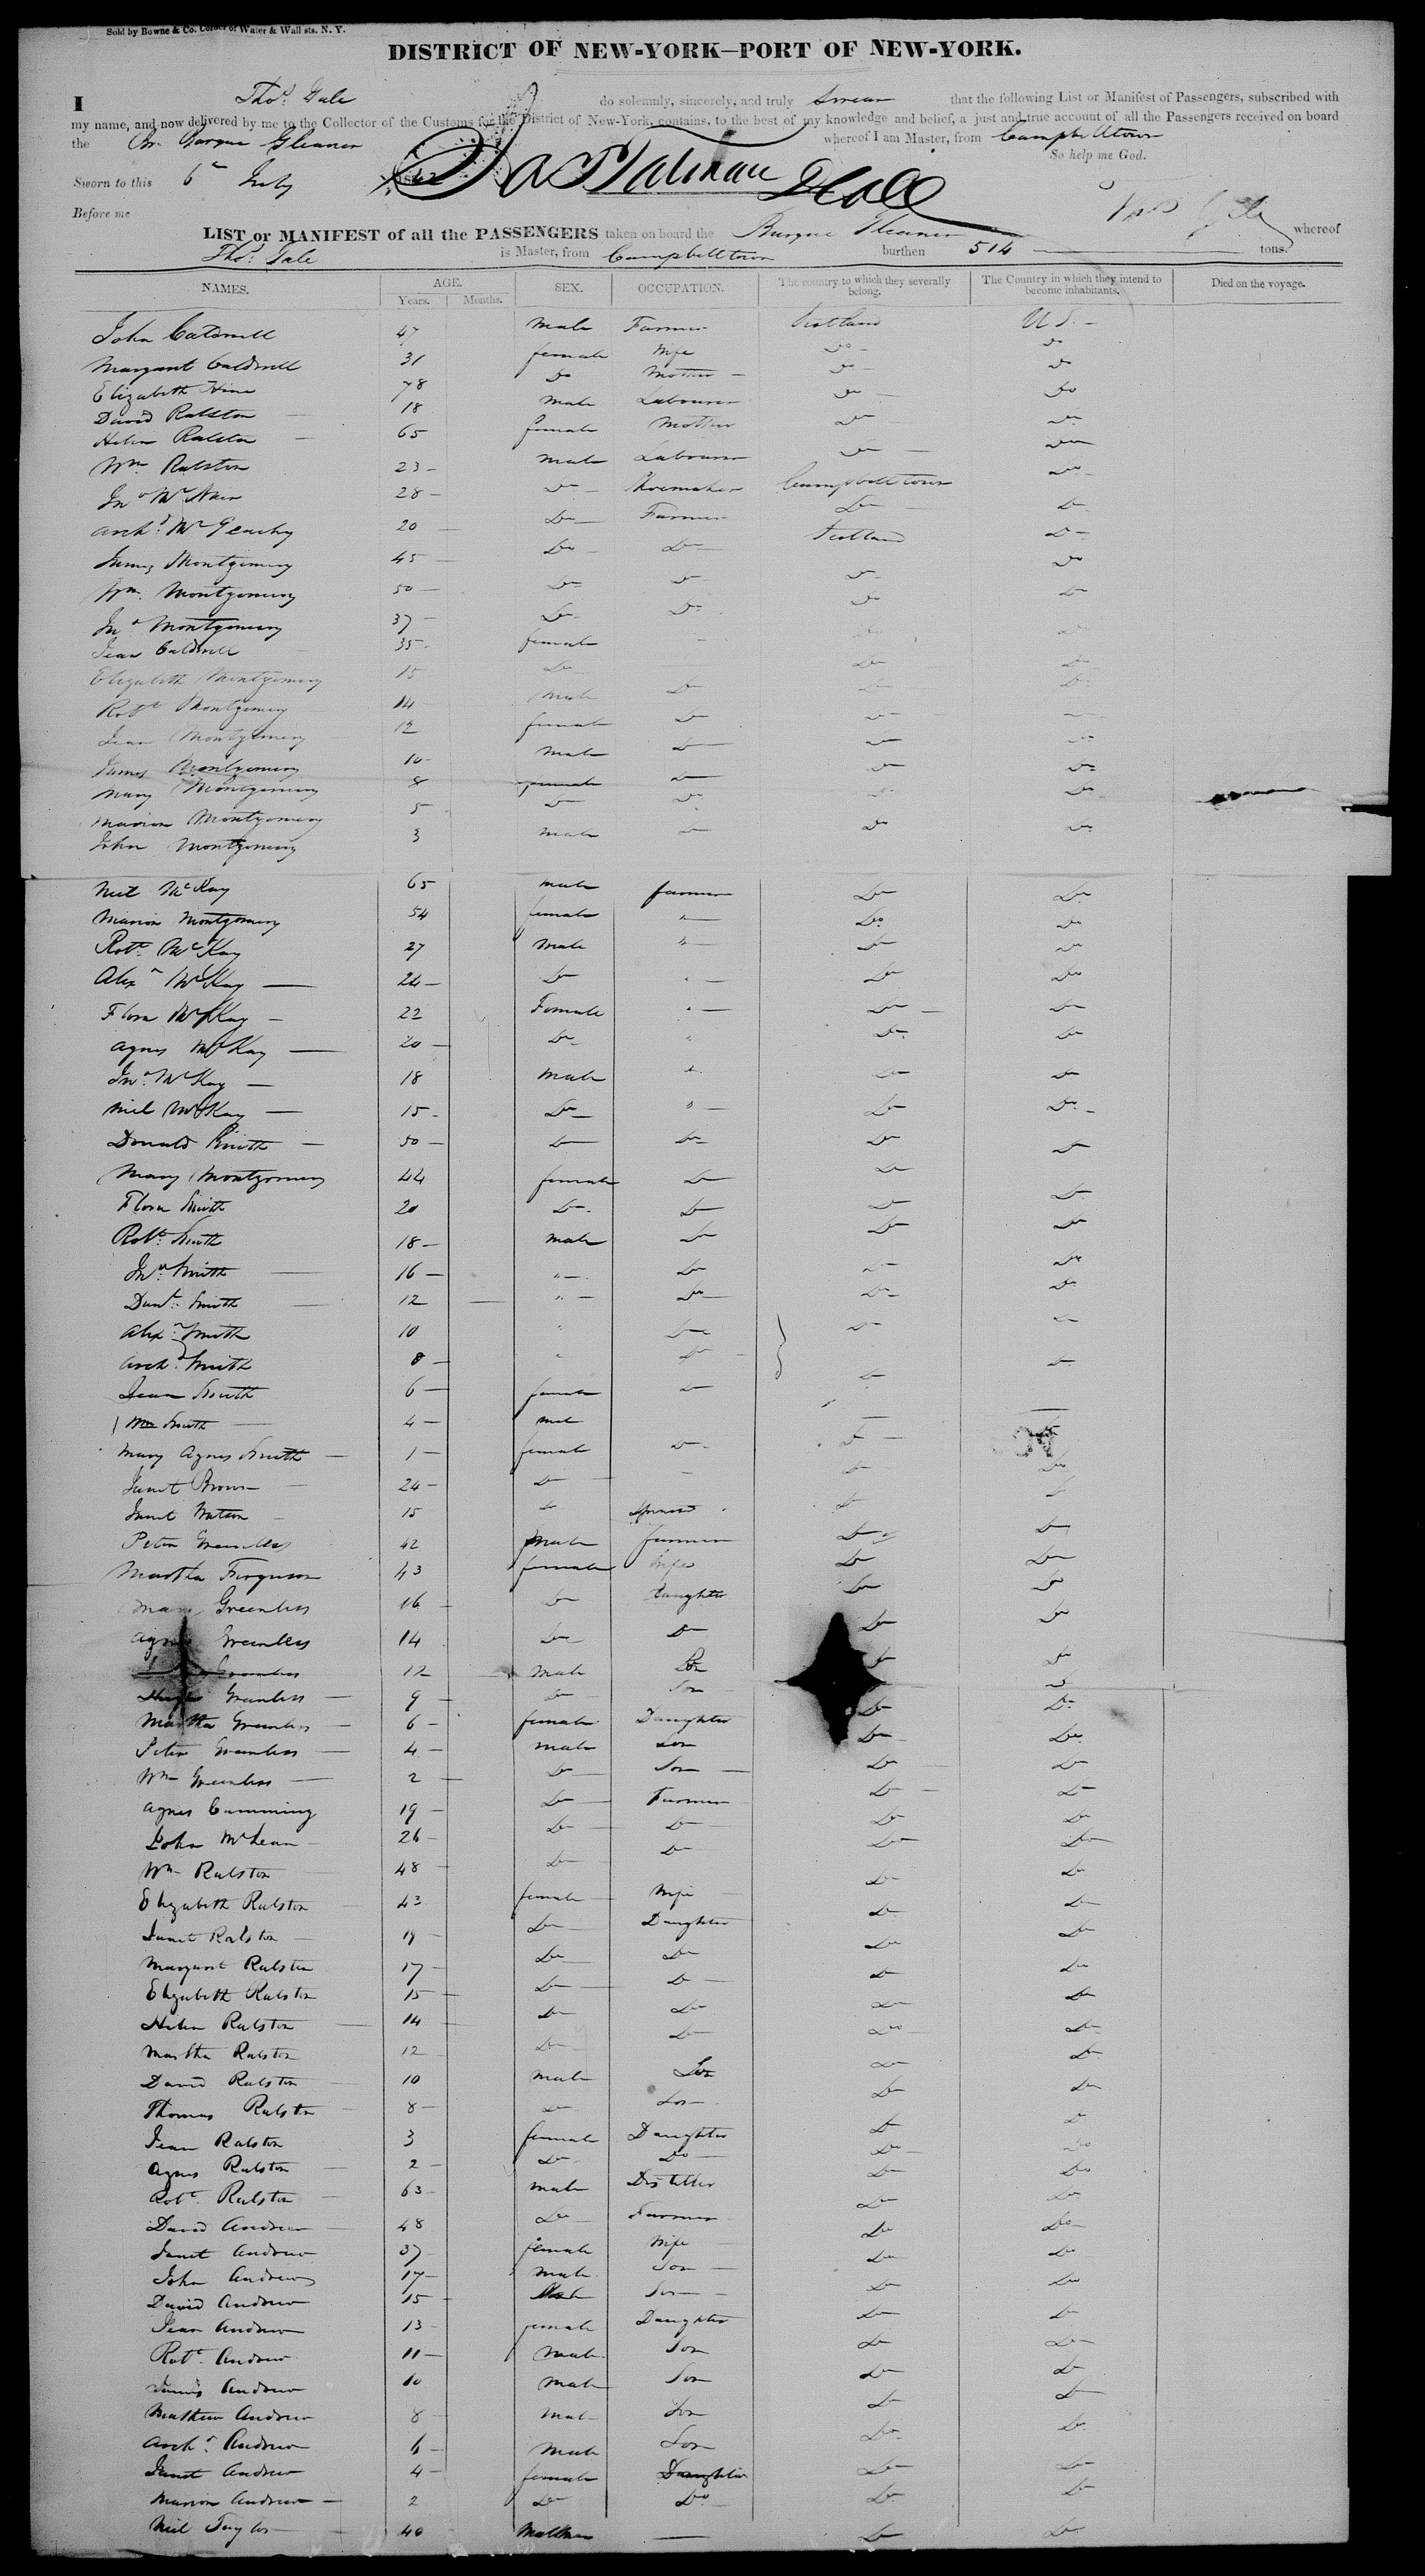 Sold by Bowne & Co. Corner of Water & Wall sts. N. Y.
DISTRICT OF NEW-YORK—PORT OF NEW-YORK.
I Thos. Gale do solemnly, sincerely, and truly Swear that the following List or Manifest of Passengers, subscribed with
my name, and now delivered by me to the Collector of the Customs for the District of New-York, contains, to the best of my knowledge and belief, a just and true account of all the Passengers received on board
the Br. Barque Gleaner whereof I am Master, from Campbelltown
So help me God.
Sworn to this 6th July
Before me
LIST or MANIFEST of all the PASSENGERS taken on board the Barque Gleaner whereof
Thos. Gale is Master, from Campbelltown burthen 514 tons.
NAMES. AGE. SEX. OCCUPATION. The country to which they severally belong. The Country in which they intend to become inhabitants. Died on the voyage.
Years. Months.
John Caldwell 47 male Farmer Scotland U S.
Margaret Caldwell 31 female Wife Do Do
Elizabeth 78 Do Mother Do Do
David Ralston 18 male Labourer Do Do
Helen Ralston 65 female Mother Do Do
Wm Ralston 23 male Labourer Do Do
Jno McNair 28 Do Shoemaker Campbelltown Do
Archd McGeachy 20 Do Farmer Do Do
James Montgomery 45 Do Do Scotland Do
Wm Montgomery 50 Do Do Do Do
Jno Montgomery 37 Do Do Do Do
Jean Caldwell 35 female
Elizabeth Montgomery 15 Do Do Do
Robt Montgomery 14 male Do Do Do
Jean Montgomery 12 female Do Do
James Montgomery 10 male Do Do Do
Mary Montgomery 8 female Do Do Do
Marion Montgomery 5 Do Do Do Do
John Montgomery 3 male Do Do Do
Neil McKay 65 male farmer Do Do
Marion Montgomery 54 female " Do Do
Robt McKay 27 male " Do Do
Alexr McKay 24 Do " Do Do
Flora McKay 22 Female " Do Do
Agnes McKay 20 Do " Do Do
Jno McKay 18 male " Do Do
Niel McKay 15 Do " Do Do
Donald Smith 50 Do Do Do Do
Mary Montgomery 44 female Do Do Do
Flora Smith 20 Do Do Do Do
Robt Smith 18 male Do Do Do
Jno Smith 16 " Do Do Do
Dunn Smith 12 " Do Do Do
Alexr Smith 10 " Do Do Do
Archd Smith 8 " Do Do
Jean Smith 6 female Do Do
Wm Smith 4 male
Mary Agnes Smith 1 female Do Do
Janet Brown 24 Do Do Do
Janet Watson 15 Do Spinster Do Do
Peter Greenlees 42 Male farmer Do Do
Martha Ferguson 43 female Wife Do Do
Mary Greenlees 16 Do Daughter Do Do
Agnes Greenlees 14 Do Do Do Do
Greenlees 12 male Son Do Do
Hugh Greenlees 9 Do Son Do
Martha Greenlees 6 female Daughter Do Do
Peter Greenlees 4 male Son Do Do
Wm Greenlees 2 Do Son Do Do
Agnes Cumming 19 Do Farmer Do Do
John McLean 26 Do Do Do Do
Wm Ralston 48 Do Do Do Do
Elizabeth Ralston 43 female Wife Do Do
Janet Ralston 19 Do Daughter Do Do
Margaret Ralston 17 Do Do Do Do
Elizabeth Ralston 15 Do Do Do Do
Helen Ralston 14 Do Do Do Do
Martha Ralston 12 Do Do Do Do
David Ralston 10 male Son Do Do
Thomas Ralston 8 Do Son Do Do
Jean Ralston 3 female Daughter Do Do
Agnes Ralston 2 Do Do Do Do
Robt Ralston 63 male Distiller Do Do
David Andrew 48 Do Farmer Do Do
Janet Andrew 37 female Wife Do Do
John Andrew 17 male Son Do Do
David Andrew 15 Male Son Do Do
Jean Andrew 13 female Daughter Do Do
Robt Andrew 11 Male Son Do Do
James Andrew 10 Male Son Do Do
Mathew Andrew 8 Male Son Do Do
Archd Andrew 6 Male Son Do Do
Janet Andrew 4 female Daughter Do Do
Marion Andrew 2 Do Do Do Do
Niel Taylor 40 Do Do